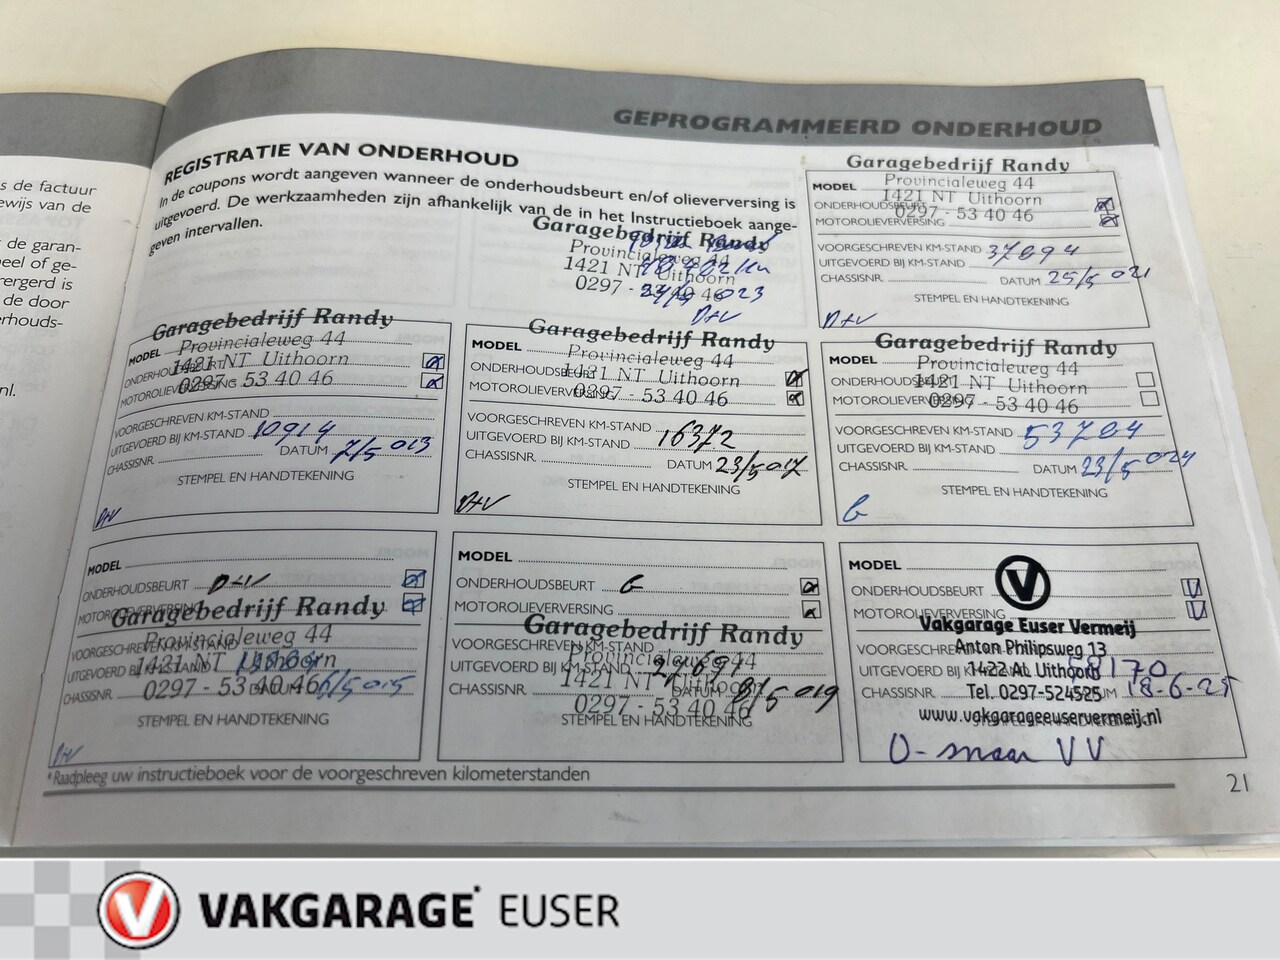 s de factuur
ewijs van de
de garan-
eel of ge-
rergerd is
de door
erhouds-
nl.
GEPROGRAMMEERD ONDERHOUD
REGISTRATIE VAN ONDERHOUD
In de coupons wordt aangeven wanneer de onderhoudsbeurt en/of olieverversing is
uitgevoerd. De werkzaamheden zijn afhankelijk van de in het Instructieboek aange-
geven intervallen.
Garagebedrijf Randy
Provincialeweg 44
1421 NT Uithoorn
0297 - 53 40 46
D+V
Garagebedrijf Randy
MODEL
Provincialeweg 44
1421 NT Uithoorn
ONDERHOUDSBEURT
0297 - 53 40 46
MOTOROLIEVERVERSING
VOORGESCHREVEN KM-STAND
UITGEVOERD BIJ KM-STAND 37694
CHASSISNR. DATUM 25/5 021
STEMPEL EN HANDTEKENING
D+V
Garagebedrijf Randy
MODEL
Provincialeweg 44
1421 NT Uithoorn
ONDERHOUDSBEURT
0297 - 53 40 46
MOTOROLIEVERVERSING
VOORGESCHREVEN KM-STAND
UITGEVOERD BIJ KM-STAND 10914
CHASSISNR. DATUM 7/5 013
STEMPEL EN HANDTEKENING
D+V
Garagebedrijf Randy
MODEL
Provincialeweg 44
ONDERHOUDSBEURT
1421 NT Uithoorn
MOTOROLIEVERVERSING
0297 - 53 40 46
VOORGESCHREVEN KM-STAND
UITGEVOERD BIJ KM-STAND 16372
CHASSISNR. DATUM 23/5 017
STEMPEL EN HANDTEKENING
D+V
Garagebedrijf Randy
MODEL
Provincialeweg 44
ONDERHOUDSBEURT
1421 NT Uithoorn
MOTOROLIEVERVERSING
0297 - 53 40 46
VOORGESCHREVEN KM-STAND
UITGEVOERD BIJ KM-STAND 53704
CHASSISNR. DATUM 23/5 024
STEMPEL EN HANDTEKENING
G
MODEL
ONDERHOUDSBEURT D+V
MOTOROLIEVERVERSING
Garagebedrijf Randy
VOORGESCHREVEN KM-STAND
Provincialeweg 44
UITGEVOERD BIJ KM-STAND
1421 NT Uithoorn
CHASSISNR. 6/5 015
0297 - 53 40 46
STEMPEL EN HANDTEKENING
D+V
MODEL
ONDERHOUDSBEURT G
MOTOROLIEVERVERSING
Garagebedrijf Randy
VOORGESCHREVEN KM-STAND
Provincialeweg 44
UITGEVOERD BIJ KM-STAND
1421 NT Uithoorn
CHASSISNR. DATUM 8/5 019
0297 - 53 40 46
STEMPEL EN HANDTEKENING
MODEL
ONDERHOUDSBEURT
MOTOROLIEVERVERSING
Vakgarage Euser Vermeij
VOORGESCHREVEN
Anton Philipsweg 13
UITGEVOERD BIJ KM-STAND 58170
1422 AL Uithoorn
CHASSISNR. DATUM 18-6-25
Tel. 0297-524525
www.vakgarageeuservermeij.nl
STEMPEL EN HANDTEKENING
O- maar VV
*Raadpleeg uw instructieboek voor de voorgeschreven kilometerstanden
21
VAKGARAGE EUSER